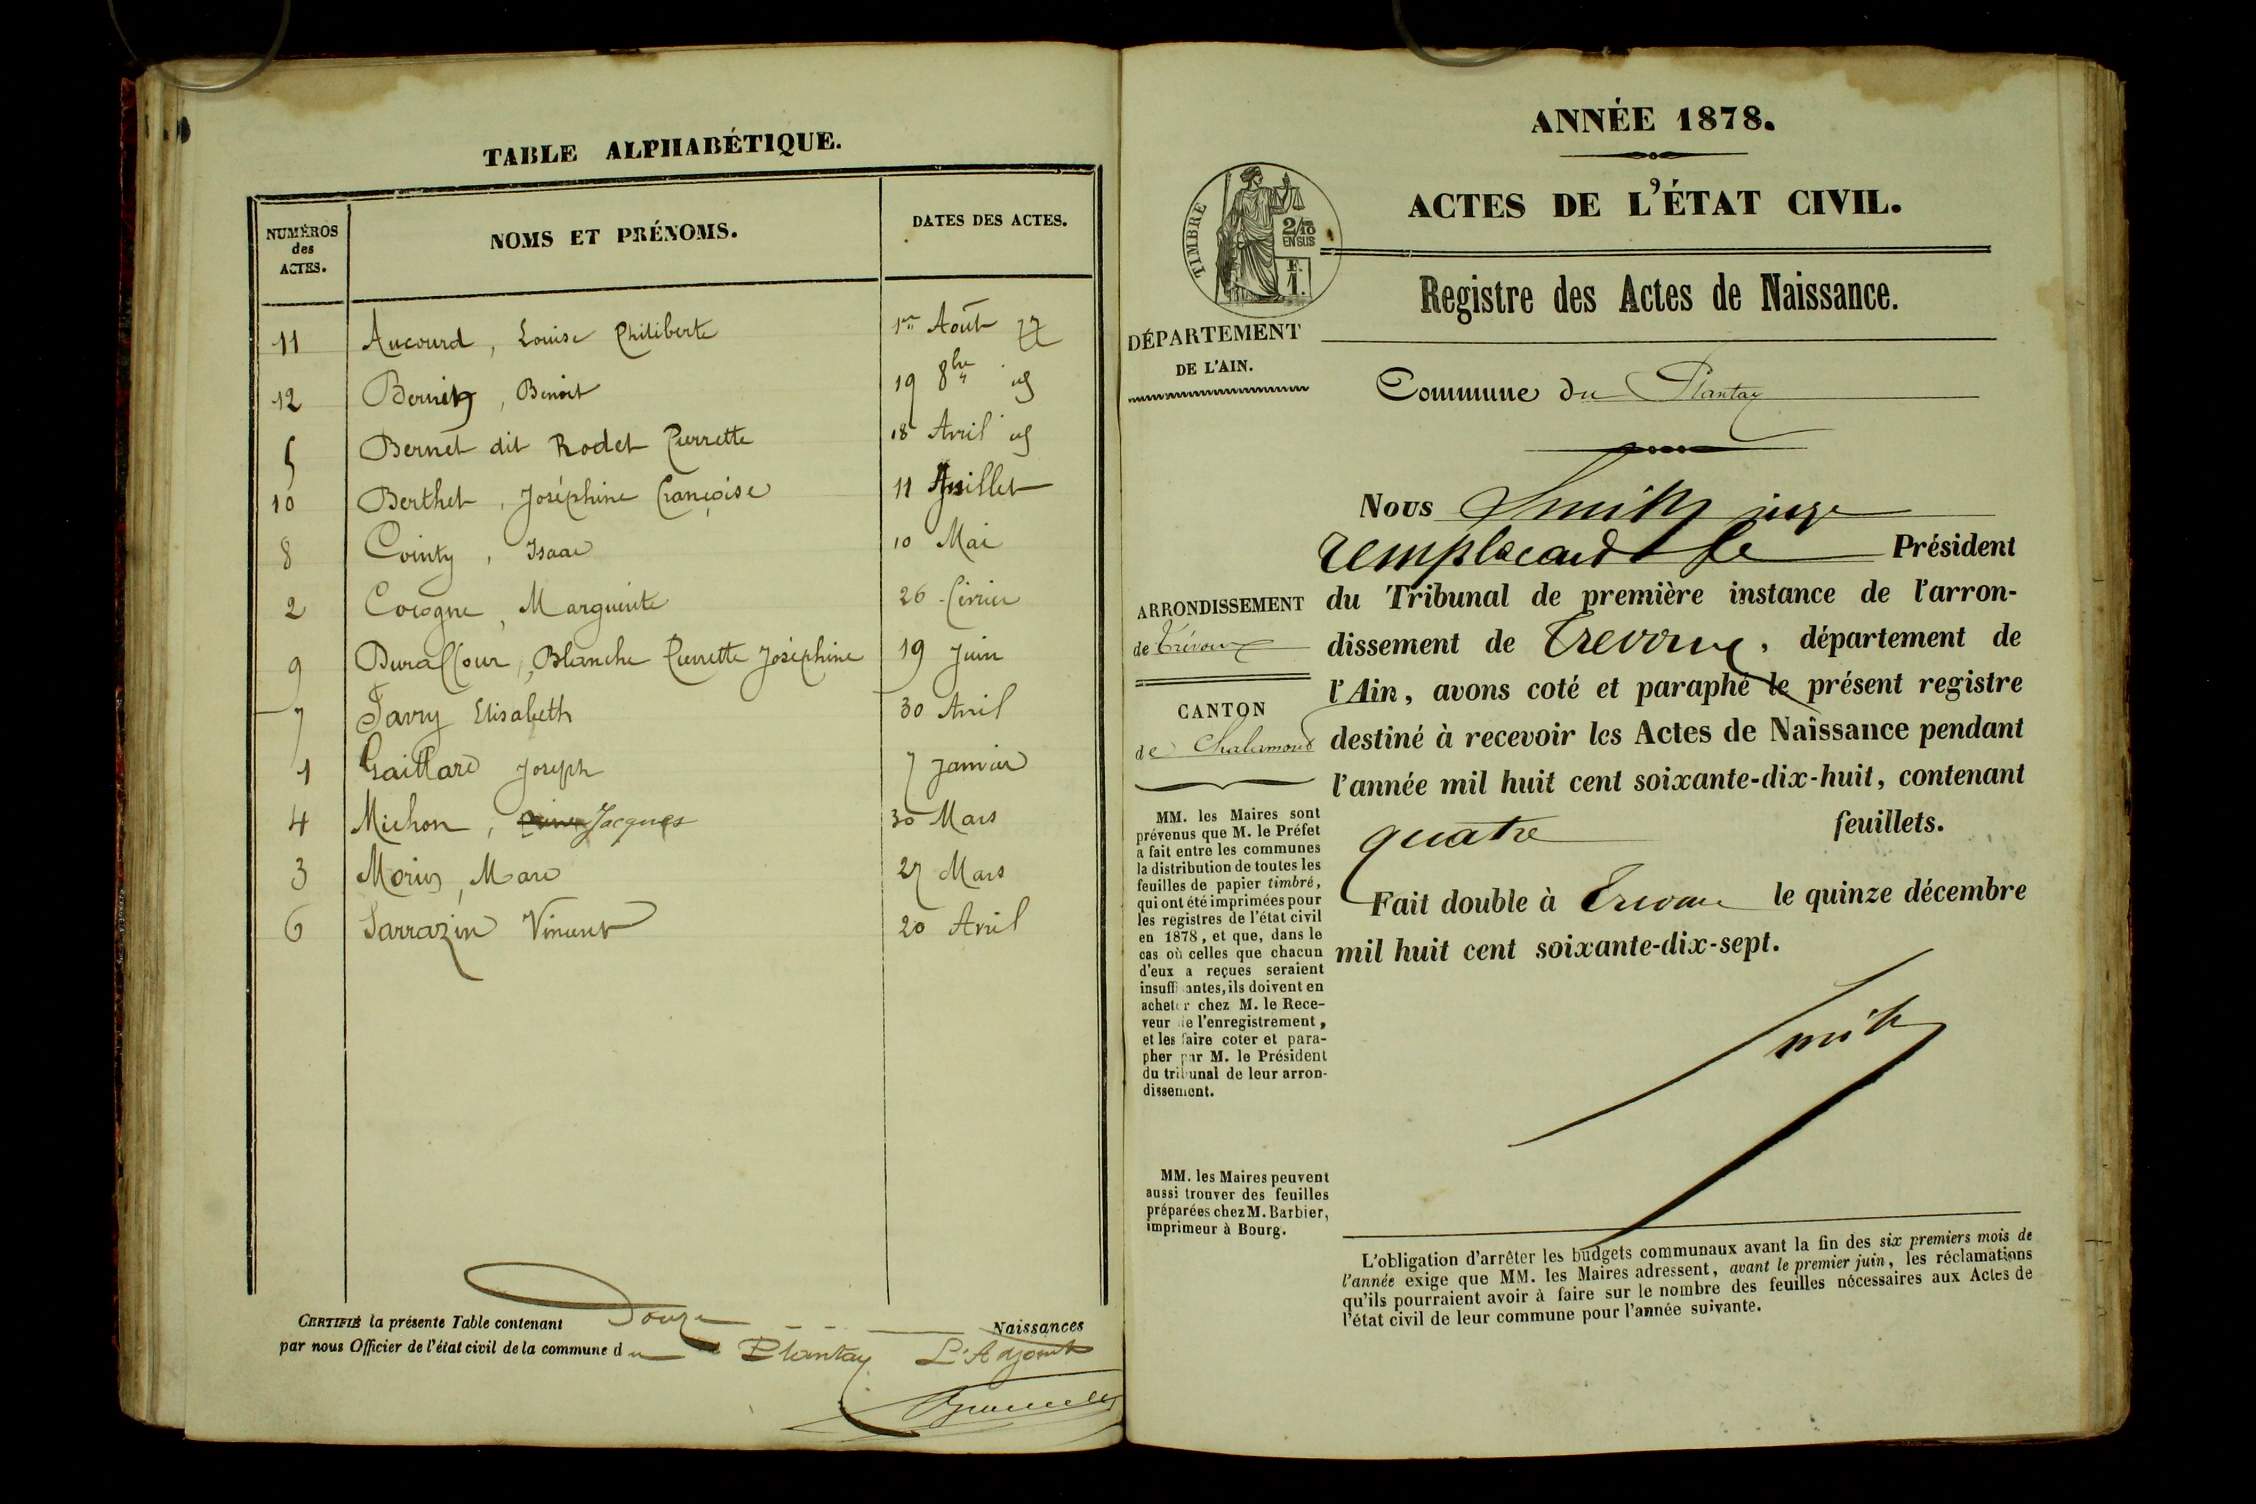 TABLE ALPHABÉTIQUE.
NUMÉROS des ACTES.
NOMS ET PRÉNOMS.
DATES DES ACTES.
11 Aucourd, Louise Philiberte 1er Août 77
12 Bernin, Benoit 19 8bre
5 Bernet dit Rodet Pierrette 18 Avril
10 Berthet, Joséphine Françoise 11 Juillet
8 Cointy, Isaac 10 Mai
2 Cocogne, Marguerite 26 Février
9 Duraffour, Blanche Pierrette Joséphine 19 Juin
7 Favry Elisabeth 30 Avril
1 Gaillard Joseph 7 Janvier
4 Michon, Jacques 30 Mars
3 Morin, Marc 27 Mars
6 Sarrazin Vincent 20 Avril
CERTIFIÉ la présente Table contenant Douze Naissances
par nous Officier de l'état civil de la commune du Plantay L'Adjoint
ANNÉE 1878.
ACTES DE L'ÉTAT CIVIL.
TIMBRE
2/10
EN SUS
F.
1.
Registre des Actes de Naissance.
DÉPARTEMENT
DE L'AIN.
Commune du Plantay
Nous Smith juge
remplaçant le Président
du Tribunal de première instance de l'arron-
dissement de Trévoux, département de
l'Ain, avons coté et paraphé le présent registre
destiné à recevoir les Actes de Naissance pendant
l'année mil huit cent soixante-dix-huit, contenant
quatre feuillets.
Fait double à Trévoux le quinze décembre
mil huit cent soixante-dix-sept.
Smith
ARRONDISSEMENT
de Trévoux
CANTON
de Chalamont
MM. les Maires sont
prévenus que M. le Préfet
a fait entre les communes
la distribution de toutes les
feuilles de papier timbré,
qui ont été imprimées pour
les registres de l'état civil
en 1878, et que, dans le
cas où celles que chacun
d'eux a reçues seraient
insuffisantes, ils doivent en
acheter chez M. le Rece-
veur de l'enregistrement,
et les faire coter et para-
pher par M. le Président
du tribunal de leur arron-
dissement.
MM. les Maires peuvent
aussi trouver des feuilles
préparées chez M. Barbier,
imprimeur à Bourg.
L'obligation d'arrêter les budgets communaux avant la fin des six premiers mois de
l'année exige que MM. les Maires adressent, avant le premier juin, les réclamations
qu'ils pourraient avoir à faire sur le nombre des feuilles nécessaires aux Actes de
l'état civil de leur commune pour l'année suivante.